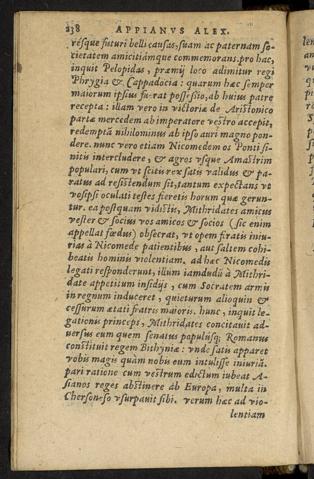 238 APPIANVS ALEX.
résque futuri belli causas, suam ac paternam so-
cietatem amicitiámque commemorans. pro hac,
inquit Pelopidas, præmij loco adimitur regi
Phrygia & Cappadocia: quarum hæc semper
maiorum ipsius fuerat possessio, ab huius patre
recepta: illam vero in victoriæ de Aristonico
partæ mercedem ab imperatore vestro accepit,
redemptā nihilominus ab ipso auri magno pon-
dere. nunc vero etiam Nicomedem os Ponti fi-
nitis intercludere, & agros vsque Amastrim
populari, cum vt scitis rex satis validus & pa-
ratus ad resistendum sit, tantum expectans vt
vosipsi oculati testes fieretis horum quæ gerun-
tur. ea postquam vidistis, Mithridates amicus
vester & socius vos amicos & socios (sic enim
appellat fœdus) obsecrat, vt opem feratis iniu-
rias à Nicomede patientibus, aut saltem cohi-
beatis hominis violentiam. ad hæc Nicomedis
legati responderunt, illum iamdudū à Mithri-
date appetitum insidijs, cum Socratem armis
in regnum induceret, quieturum alioquin &
cessurum ætati fratris maioris. hunc, inquit le-
gationis princeps, Mithridates concitauit ad-
uersus eum quem senatus populúsq; Romanus
constituit regem Bithyniæ: vnde satis apparet
vobis magis quàm nobis eum intulisse iniuriā.
pari ratione cum vestrum edictum iubeat A-
sianos reges abstinere ab Europa, multa in
Chersoneso vsurpauit sibi. verum hæc ad vio-
lentiam